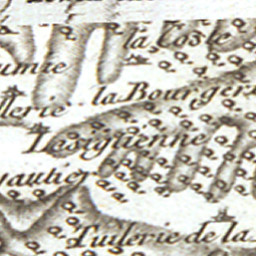 la Coste
umie
llerie
la Bourgeri
Lesiguenne
yautier
Tuilerie de la